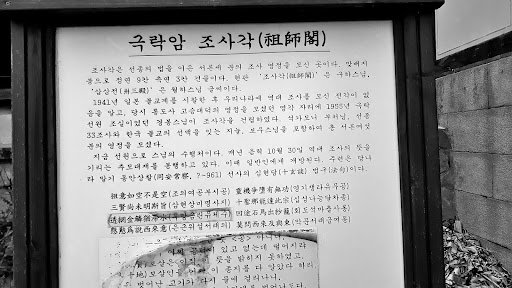 극락암 조사각(祖師閣)
조사각은 선종의 법을 이은 서른세 분의 조사 영정을 모신 곳이다. 맞배지
붕으로 정면 9칸 측면 3칸 건물이다. 현판 '조사각(祖師閣)'은 구하스님,
은 월하스님 글씨이다.
1941년 일본 불교계를 시찰한 후 우리나라에 역대 조사를 모신 전각이 없
음을 알고, 당시 통도사 고승대덕의 영정을 모셨던 영각 자리에 1955년 극락
선원 조실이었던 경봉스님이 조사각을 건립하였다. 석가모니 부처님, 선종
33조사와 한국 불교의 선맥을 잇는 지눌, 보우스님을 포함하여 총 서른여섯
분의 영정을 모셨다.
지금 선원으로 스님의 수행처이다. 매년 음력 10월 30일 역대 조사의 뜻을
기리는 추모다례재를 봉행하고 있다. 이때 일반인에게 개방된다. 주련은 당나
라 말기 동안상찰(同安常察, ?~961) 선사의 십현담(十玄談) 법구(法句)이다.
祖意如空不是空(조의여공부시공) 靈機爭墮有無功(영기쟁타유무공)
三賢尚未明斯旨(삼현상미명사지) 十聖那能達此宗(십성나능달차종)
透網金鱗猶滯水 回途石馬出紗籠(회도석마출사롱)
慇懃爲說西來意(은근위설서래의) 莫問西來及與東(막문서래급여동)
있고 없는데 떨어지랴
뜻을 밝히지 못하였고,